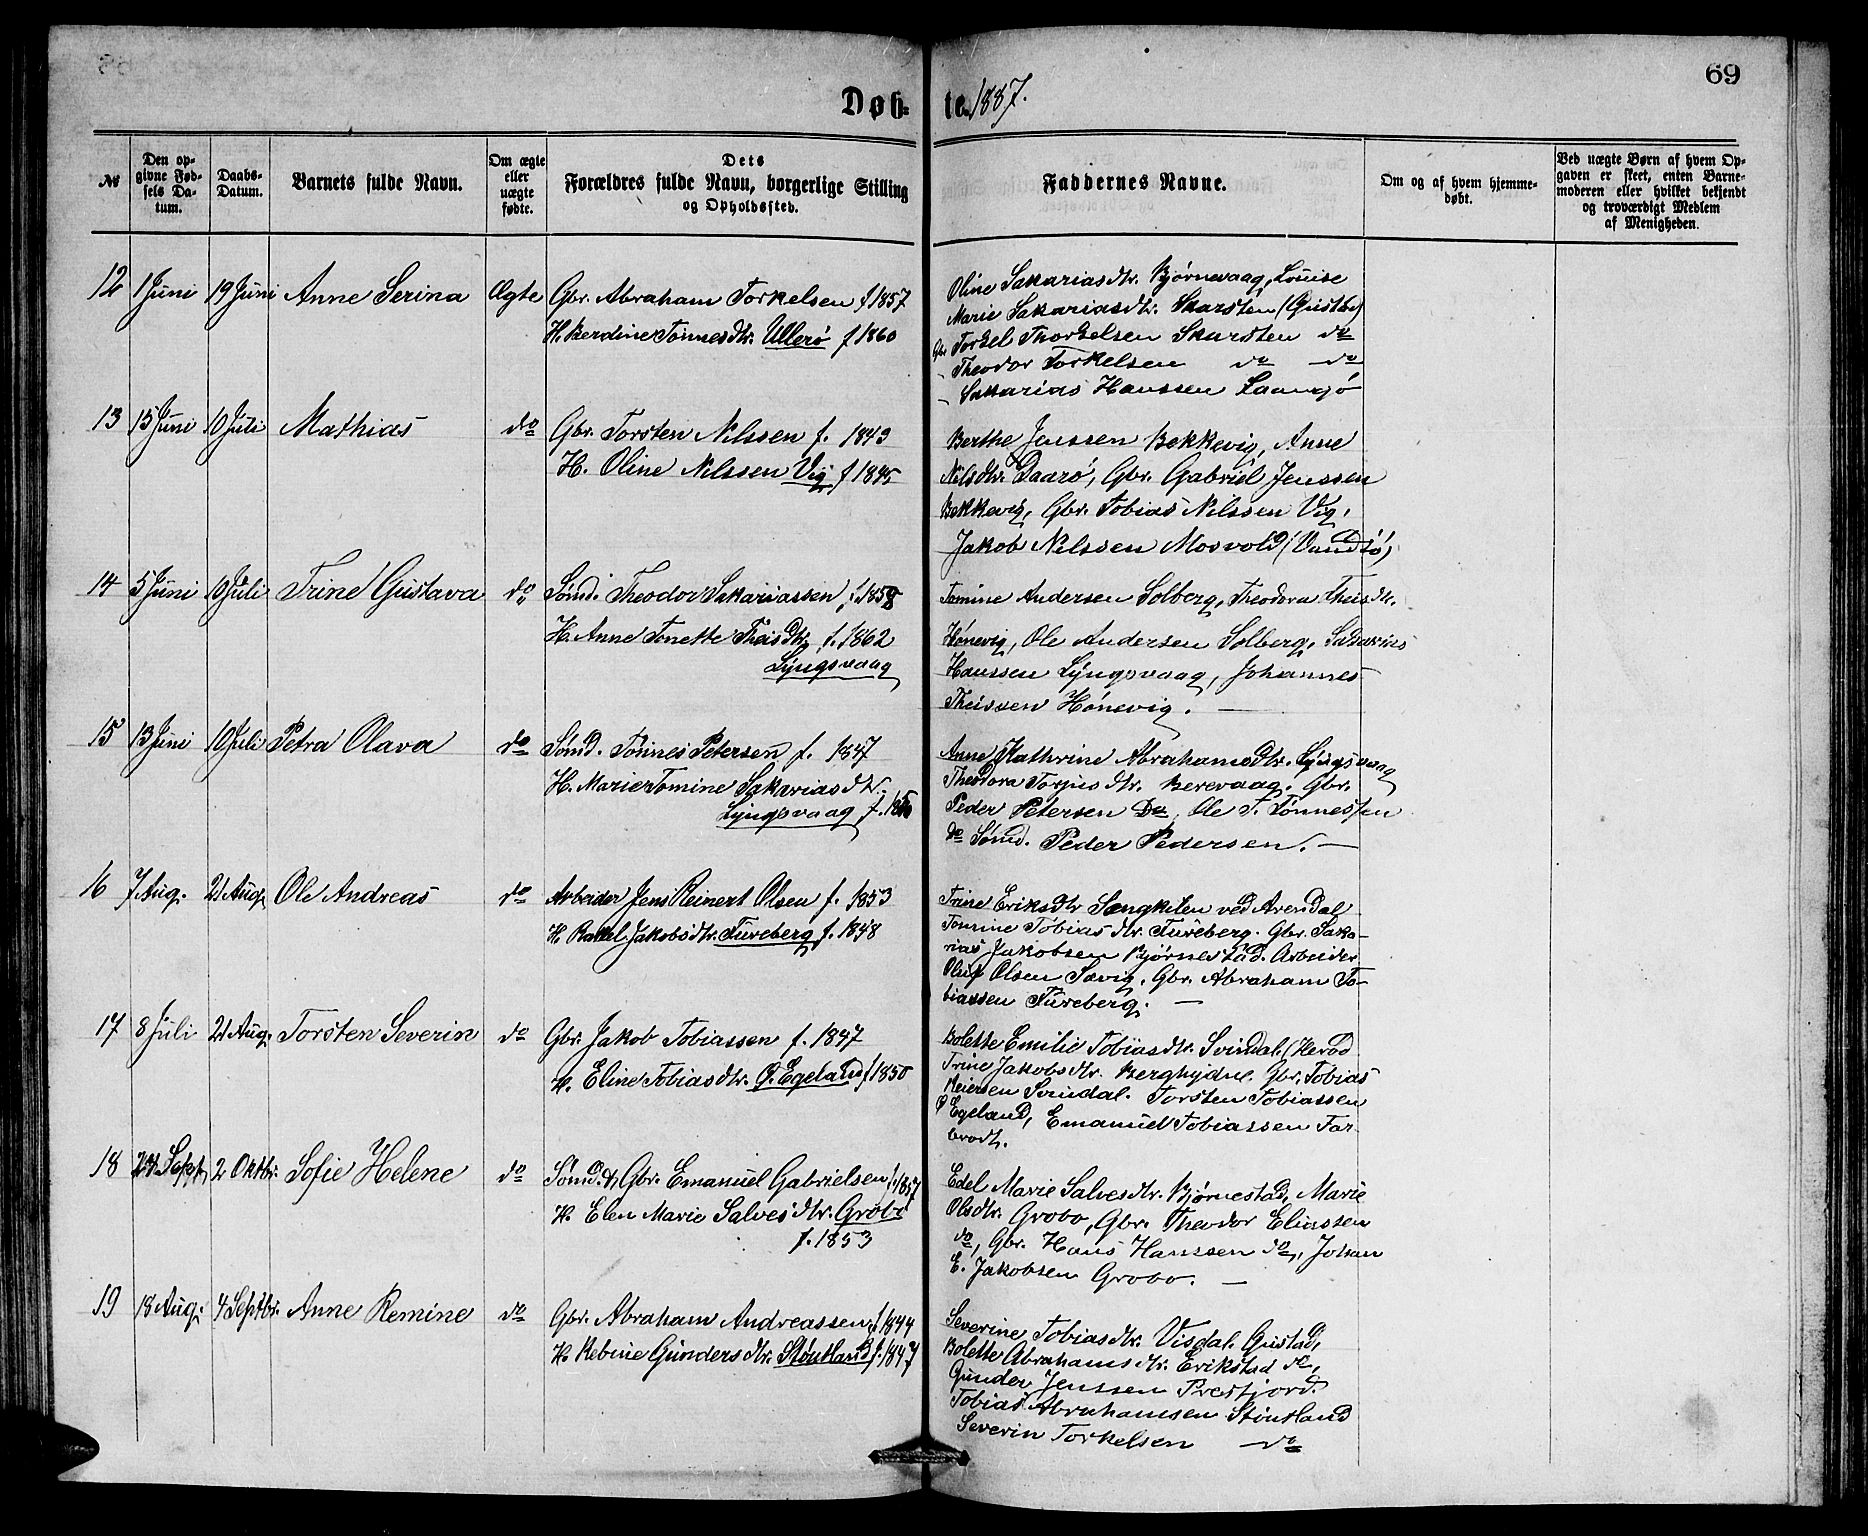 69
Døb= te. 1887.
№
Den op-
givne Fød-
sels Da-
tum.
Daabs-
Datum.
Barnets fulde Navn.
Om ægte
eller
uægte
fødte.
Dets
Forældres fulde Navn, borgerlige Stilling
og Opholdssted.
Faddernes Navne.
Om og af hvem hjemme-
døbt.
Ved uægte Børn af hvem Op-
gaven er skeet, enten Barne-
moderen eller hvilket bekjendt
og troværdigt Medlem
af Menigheden.
12 1 Juni 19 Juni Anne Serina Ægte Gbr. Abraham Torkelsen f 1857
H. Berdine Tønnesdtr. Ullerø f 1860
Oline Sakariasdtr. Bjørnevaag, Louise
Marie Sakariasdtr. Skarsten (Gustad)
Gbr Torkel Thorkelsen Skarsten do
Theodor Torkelsen do do
Sakarias Hanssen
13 15 Juni 10 Juli Mathias do Gbr. Torsten Nilssen f. 1843
H. Oline Nilssen Vig f 1845
Berthe Jenssen Bekkevig, Anne
Nilsdtr. Daarø, Gbr. Gabriel Jenssen
Bekkevig, Gbr. Tobias Nilssen Vig,
Jakob Nilssen Mosvold (Vandsø)
14 5 Juni 10 Juli Trine Gustava do Sømd. Theodor Sakariassen f. 1858
H. Anne Tonette Theisdtr. f. 1862
Lyngsvaag
Tomine Andersen Solberg, Theodora Theisdtr.
Hønevig, Ole Andersen Solberg, Sakarias
Hanssen Lyngsvaag, Johannes
Theissen Hønevig.
15 13 Juni 10 Juli Petra Olava do Sømd. Tønnes Petersen f. 1847
H. Marie Tomine Sakariasdtr.
Lyngsvaag f.
Anne Kathrine Abrahamsdtr. Lyngsvaag
Theodora Torjusdtr. Berevaag. Gbr.
Peder Petersen Do, Ole T. Tønnessen
do Sømd. Peder Pedersen.
16 7 Aug. 21 Aug. Ole Andreas do Arbeider Jens Reinert Olsen f. 1853
H. Rakel Jakobsdtr. Fureberg f. 1848
Trine Eriksdtr Songkilen ved Arendal
Tomine Tobiasdtr. Fureberg. Gbr. Saka-
rias Jakobsen Bjørnestad. Arbeider
Oluf Olsen Sævig, Gbr. Abraham To-
biassen Fureberg.
17 8 Juli 21 Aug. Torsten Severin do Gbr. Jakob Tobiassen f. 1847
H. Eline Tobiasdtr. Ø. Egeland f 1850
Bolette Emilie Tobiasdtr. Svindal. (Herad
Trine Jakobsdtr. Gbr. Tobias
Reiersen Svindal. Torsten Tobiassen
Ø Egeland, Emanuel Tobiassen Far-
brodt.
18 Sept. 2 Oktbr. Sofie Helene do Sømd. & Gbr. Emanuel Gabrielsen f. 1857
H. Elen Marie Salvesdtr. Grobo
f. 1853
Edel Marie Salvesdtr. Bjørnestad, Marie
Olsdtr. Grobo, Gbr. Theodor Eliassen
do, Gbr. Hans Hanssen do, Johan
E. Jakobsen Grobo.
19 18 Aug. 4 Septbr. Anne Remine do Gbr. Abraham Andreassen f 1844
H. Rebine Gundersdtr. Støutland f. 1847
Severine Tobiasdtr. Visdal. Gustad,
Bolette Abrahamsdtr. Erikstad do,
Gunder Jenssen Prestjord.
Tobias Abrahamsen Støutland
Severin Torkelsen do